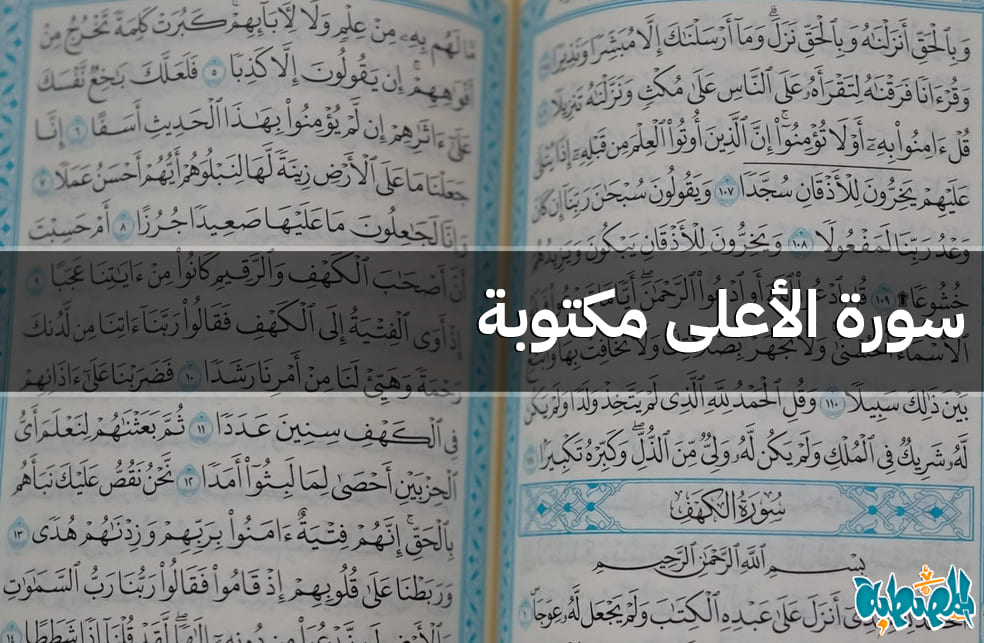 سورة الأعلى مكتوبة
وَبِٱلْحَقِّ أَنزَلْنَٰهُ وَبِٱلْحَقِّ نَزَلَۗ وَمَآ أَرْسَلْنَٰكَ إِلَّا مُبَشِّرًا وَنَذِيرًا
وَقُرْءَانًا فَرَقْنَٰهُ لِتَقْرَأَهُۥ عَلَى ٱلنَّاسِ عَلَىٰ مُكْثٍ وَنَزَّلْنَٰهُ تَنزِيلًا
قُلْ ءَامِنُوا۟ بِهِۦٓ أَوْ لَا تُؤْمِنُوٓا۟ۚ إِنَّ ٱلَّذِينَ أُوتُوا۟ ٱلْعِلْمَ مِن قَبْلِهِۦٓ إِذَا يُتْلَىٰ
عَلَيْهِمْ يَخِرُّونَ لِلْأَذْقَانِ سُجَّدًا ١٠٧ وَيَقُولُونَ سُبْحَٰنَ رَبِّنَآ إِن كَانَ
وَعْدُ رَبِّنَا لَمَفْعُولًا ١٠٨ وَيَخِرُّونَ لِلْأَذْقَانِ يَبْكُونَ وَيَزِيدُهُمْ
خُشُوعًا ۩ ١٠٩ قُلِ ٱدْعُوا۟ ٱللَّهَ أَوِ ٱدْعُوا۟ ٱلرَّحْمَٰنَۖ أَيًّا مَّا
ٱلْأَسْمَآءُ ٱلْحُسْنَىٰۚ وَلَا تَجْهَرْ بِصَلَاتِكَ وَلَا تُخَافِتْ بِهَا وَٱبْتَغِ
بَيْنَ ذَٰلِكَ سَبِيلًا ١١٠ وَقُلِ ٱلْحَمْدُ لِلَّهِ ٱلَّذِى لَمْ يَتَّخِذْ وَلَدًا وَلَمْ يَكُن
لَّهُۥ شَرِيكٌ فِى ٱلْمُلْكِ وَلَمْ يَكُن لَّهُۥ وَلِىٌّ مِّنَ ٱلذُّلِّۖ وَكَبِّرْهُ تَكْبِيرًۢا
سُورَةُ الكَهْفِ
بِسْمِ ٱللَّهِ ٱلرَّحْمَٰنِ ٱلرَّحِيمِ
أَنزَلَ عَلَىٰ عَبْدِهِ ٱلْكِتَٰبَ وَلَمْ يَجْعَل لَّهُۥ عِوَجَا
مَّا لَهُم بِهِۦ مِنْ عِلْمٍ وَلَا لِـَٔابَآئِهِمْۚ كَبُرَتْ كَلِمَةً تَخْرُجُ مِنْ
أَفْوَٰهِهِمْۚ إِن يَقُولُونَ إِلَّا كَذِبًا ٥ فَلَعَلَّكَ بَٰخِعٌ نَّفْسَكَ
عَلَىٰٓ ءَاثَٰرِهِمْ إِن لَّمْ يُؤْمِنُوا۟ بِهَٰذَا ٱلْحَدِيثِ أَسَفًا ٦ إِنَّا
جَعَلْنَا مَا عَلَى ٱلْأَرْضِ زِينَةً لَّهَا لِنَبْلُوَهُمْ أَيُّهُمْ أَحْسَنُ عَمَلًا ٧
وَإِنَّا لَجَٰعِلُونَ مَا عَلَيْهَا صَعِيدًا جُرُزًا ٨ أَمْ حَسِبْتَ
أَنَّ أَصْحَٰبَ ٱلْكَهْفِ وَٱلرَّقِيمِ كَانُوا۟ مِنْ ءَايَٰتِنَا عَجَبًا ٩
إِذْ أَوَى ٱلْفِتْيَةُ إِلَى ٱلْكَهْفِ فَقَالُوا۟ رَبَّنَآ ءَاتِنَا مِن لَّدُنكَ
رَحْمَةً وَهَيِّئْ لَنَا مِنْ أَمْرِنَا رَشَدًا ١٠ فَضَرَبْنَا عَلَىٰٓ ءَاذَانِهِمْ
فِى ٱلْكَهْفِ سِنِينَ عَدَدًا ١١ ثُمَّ بَعَثْنَٰهُمْ لِنَعْلَمَ أَىُّ
ٱلْحِزْبَيْنِ أَحْصَىٰ لِمَا لَبِثُوٓا۟ أَمَدًا ١٢ نَّحْنُ نَقُصُّ عَلَيْكَ نَبَأَهُم
بِٱلْحَقِّۚ إِنَّهُمْ فِتْيَةٌ ءَامَنُوا۟ بِرَبِّهِمْ وَزِدْنَٰهُمْ هُدًى ١٣
وَرَبَطْنَا عَلَىٰ قُلُوبِهِمْ إِذْ قَامُوا۟ فَقَالُوا۟ رَبُّنَا رَبُّ ٱلسَّمَٰوَٰتِ
وَٱلْأَرْضِ لَن نَّدْعُوَا۟ مِن دُونِهِۦٓ إِلَٰهًاۖ لَّقَدْ قُلْنَآ إِذًا شَطَطًا ١٤
المصطبة